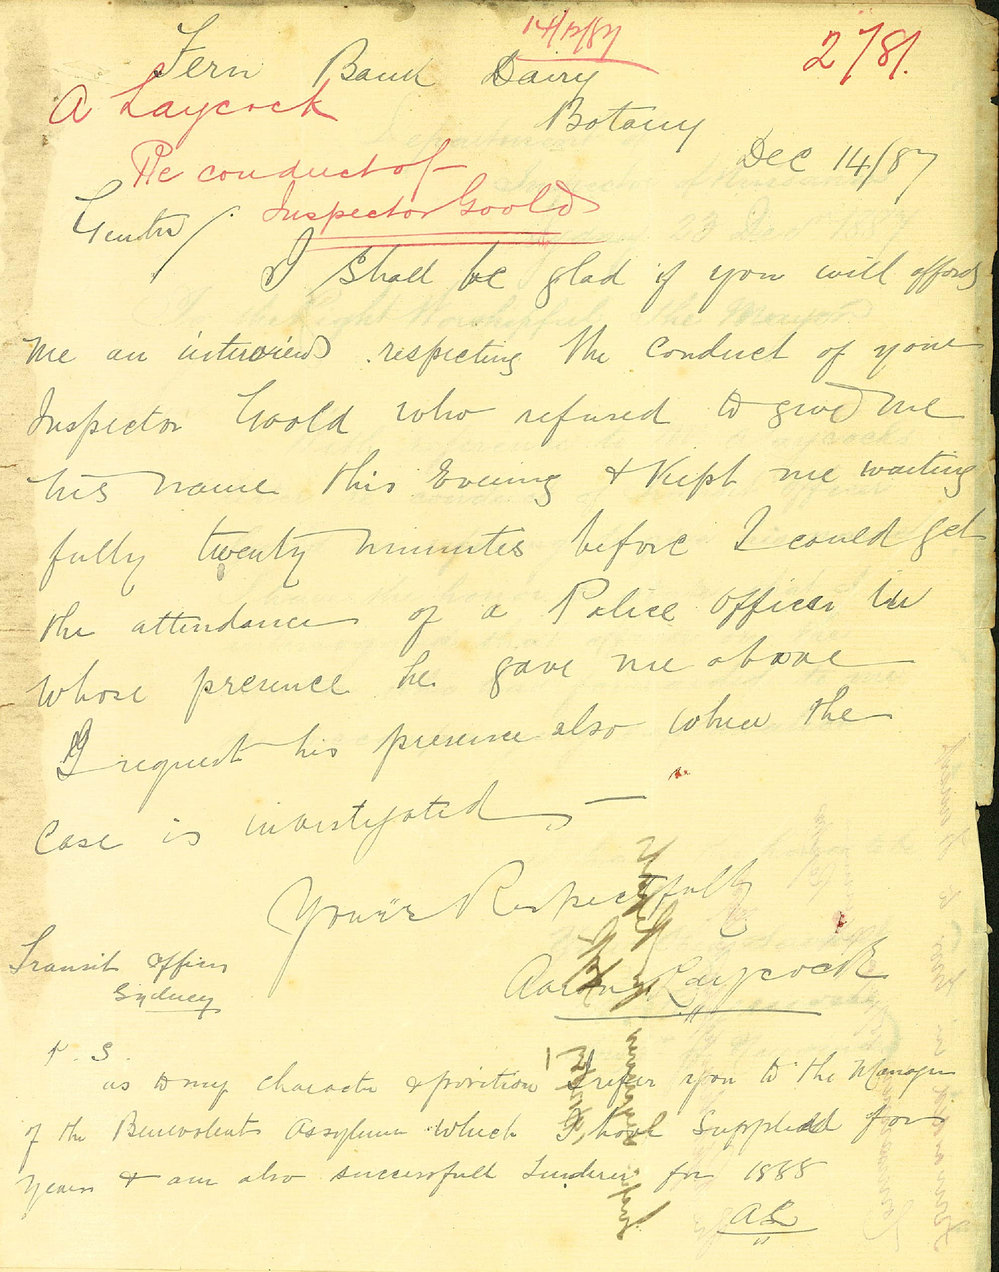 14/12/87
2781.
Fern Bank Dairy
Botany
Dec 14/87
A Laycock
Re conduct of
Inspector Goold
Gents/
I shall be glad if you will afford
me an interview respecting the conduct of your
Inspector Goold who refused to give me
his name this Evening & kept me waiting
fully twenty minutes before I could get
the attendance of a Police Officer in
whose presence he gave me above
I request his presence also when the
case is investigated –
Yours Respectfully
Aaron Laycock
Transit Offices
Sydney
P. S.
as to my character & position I refer you to the Manager
of the Benevolent Assylum which I have Supplied for
years & am also successfull Tenderer for 1888
AL